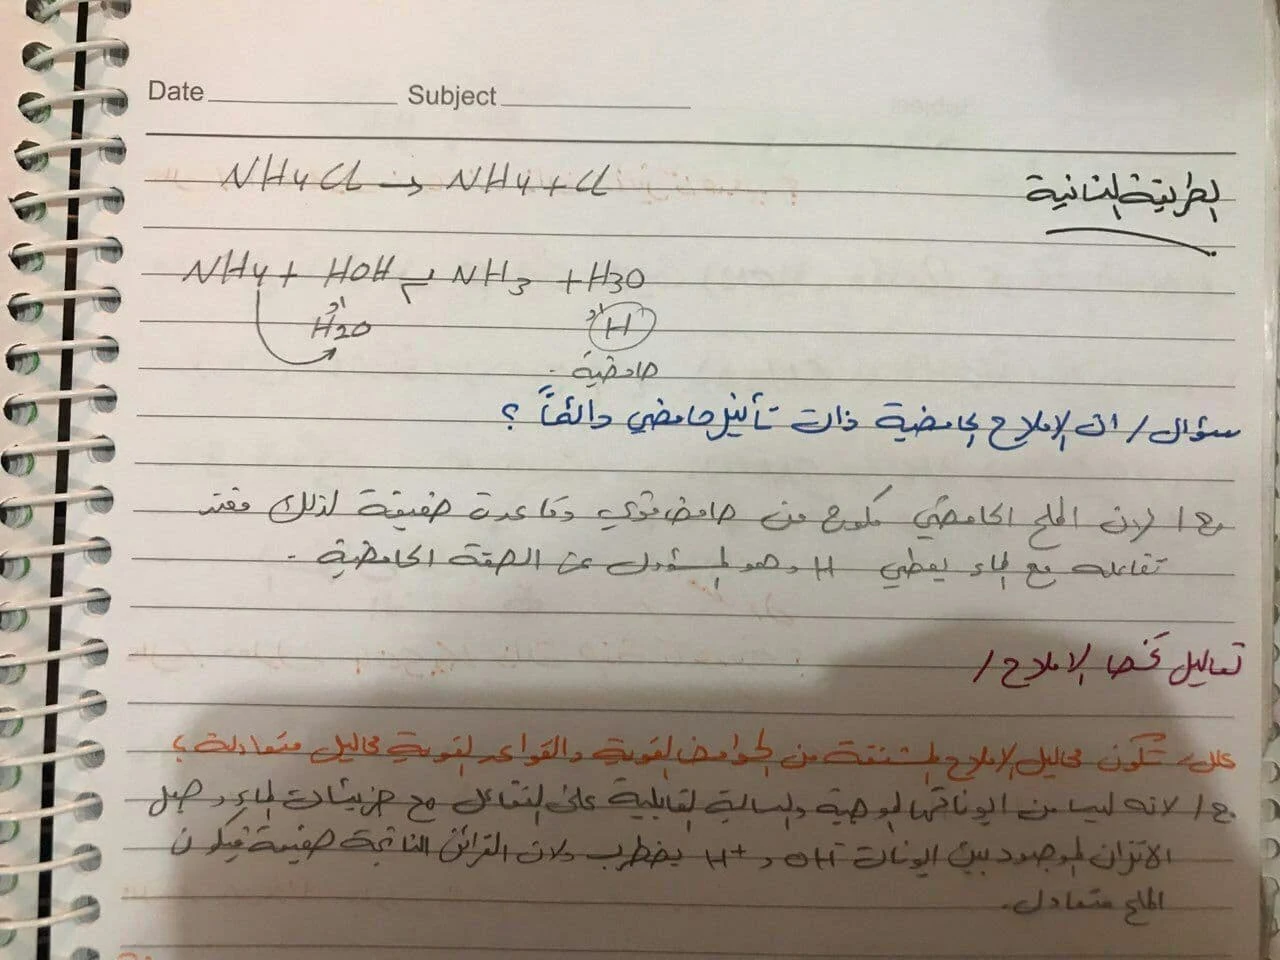 Date Subject
NH4Cl → NH4 + Cl
الطريقة الثانية
NH4 + HOH ⇌ NH3 + H3O
او او
H2O H+
حامضية .
سؤال / ان الاملاح الحامضية ذات تأثير حامضي دائماً ؟
ج / لان الملح الحامضي مكون من حامض قوي وقاعدة ضعيفة لذلك فعند
تفاعله مع الماء يعطي H وهو المسؤول عن الصفة الحامضية .
تعاليل تخص الاملاح /
علل / تكون محاليل الاملاح المشتقة من الحوامض القوية والقواعد القوية محاليل متعادلة ؟
ج / لانه ليس من ايوناتها الموجبة والسالبة القابلية على التفاعل مع جزيئات الماء وجعل
الاتزان الموجود بين ايونات OH- و H+ يضطرب ولان القرائن الناتجة ضعيفة فيكون
الملح متعادل.